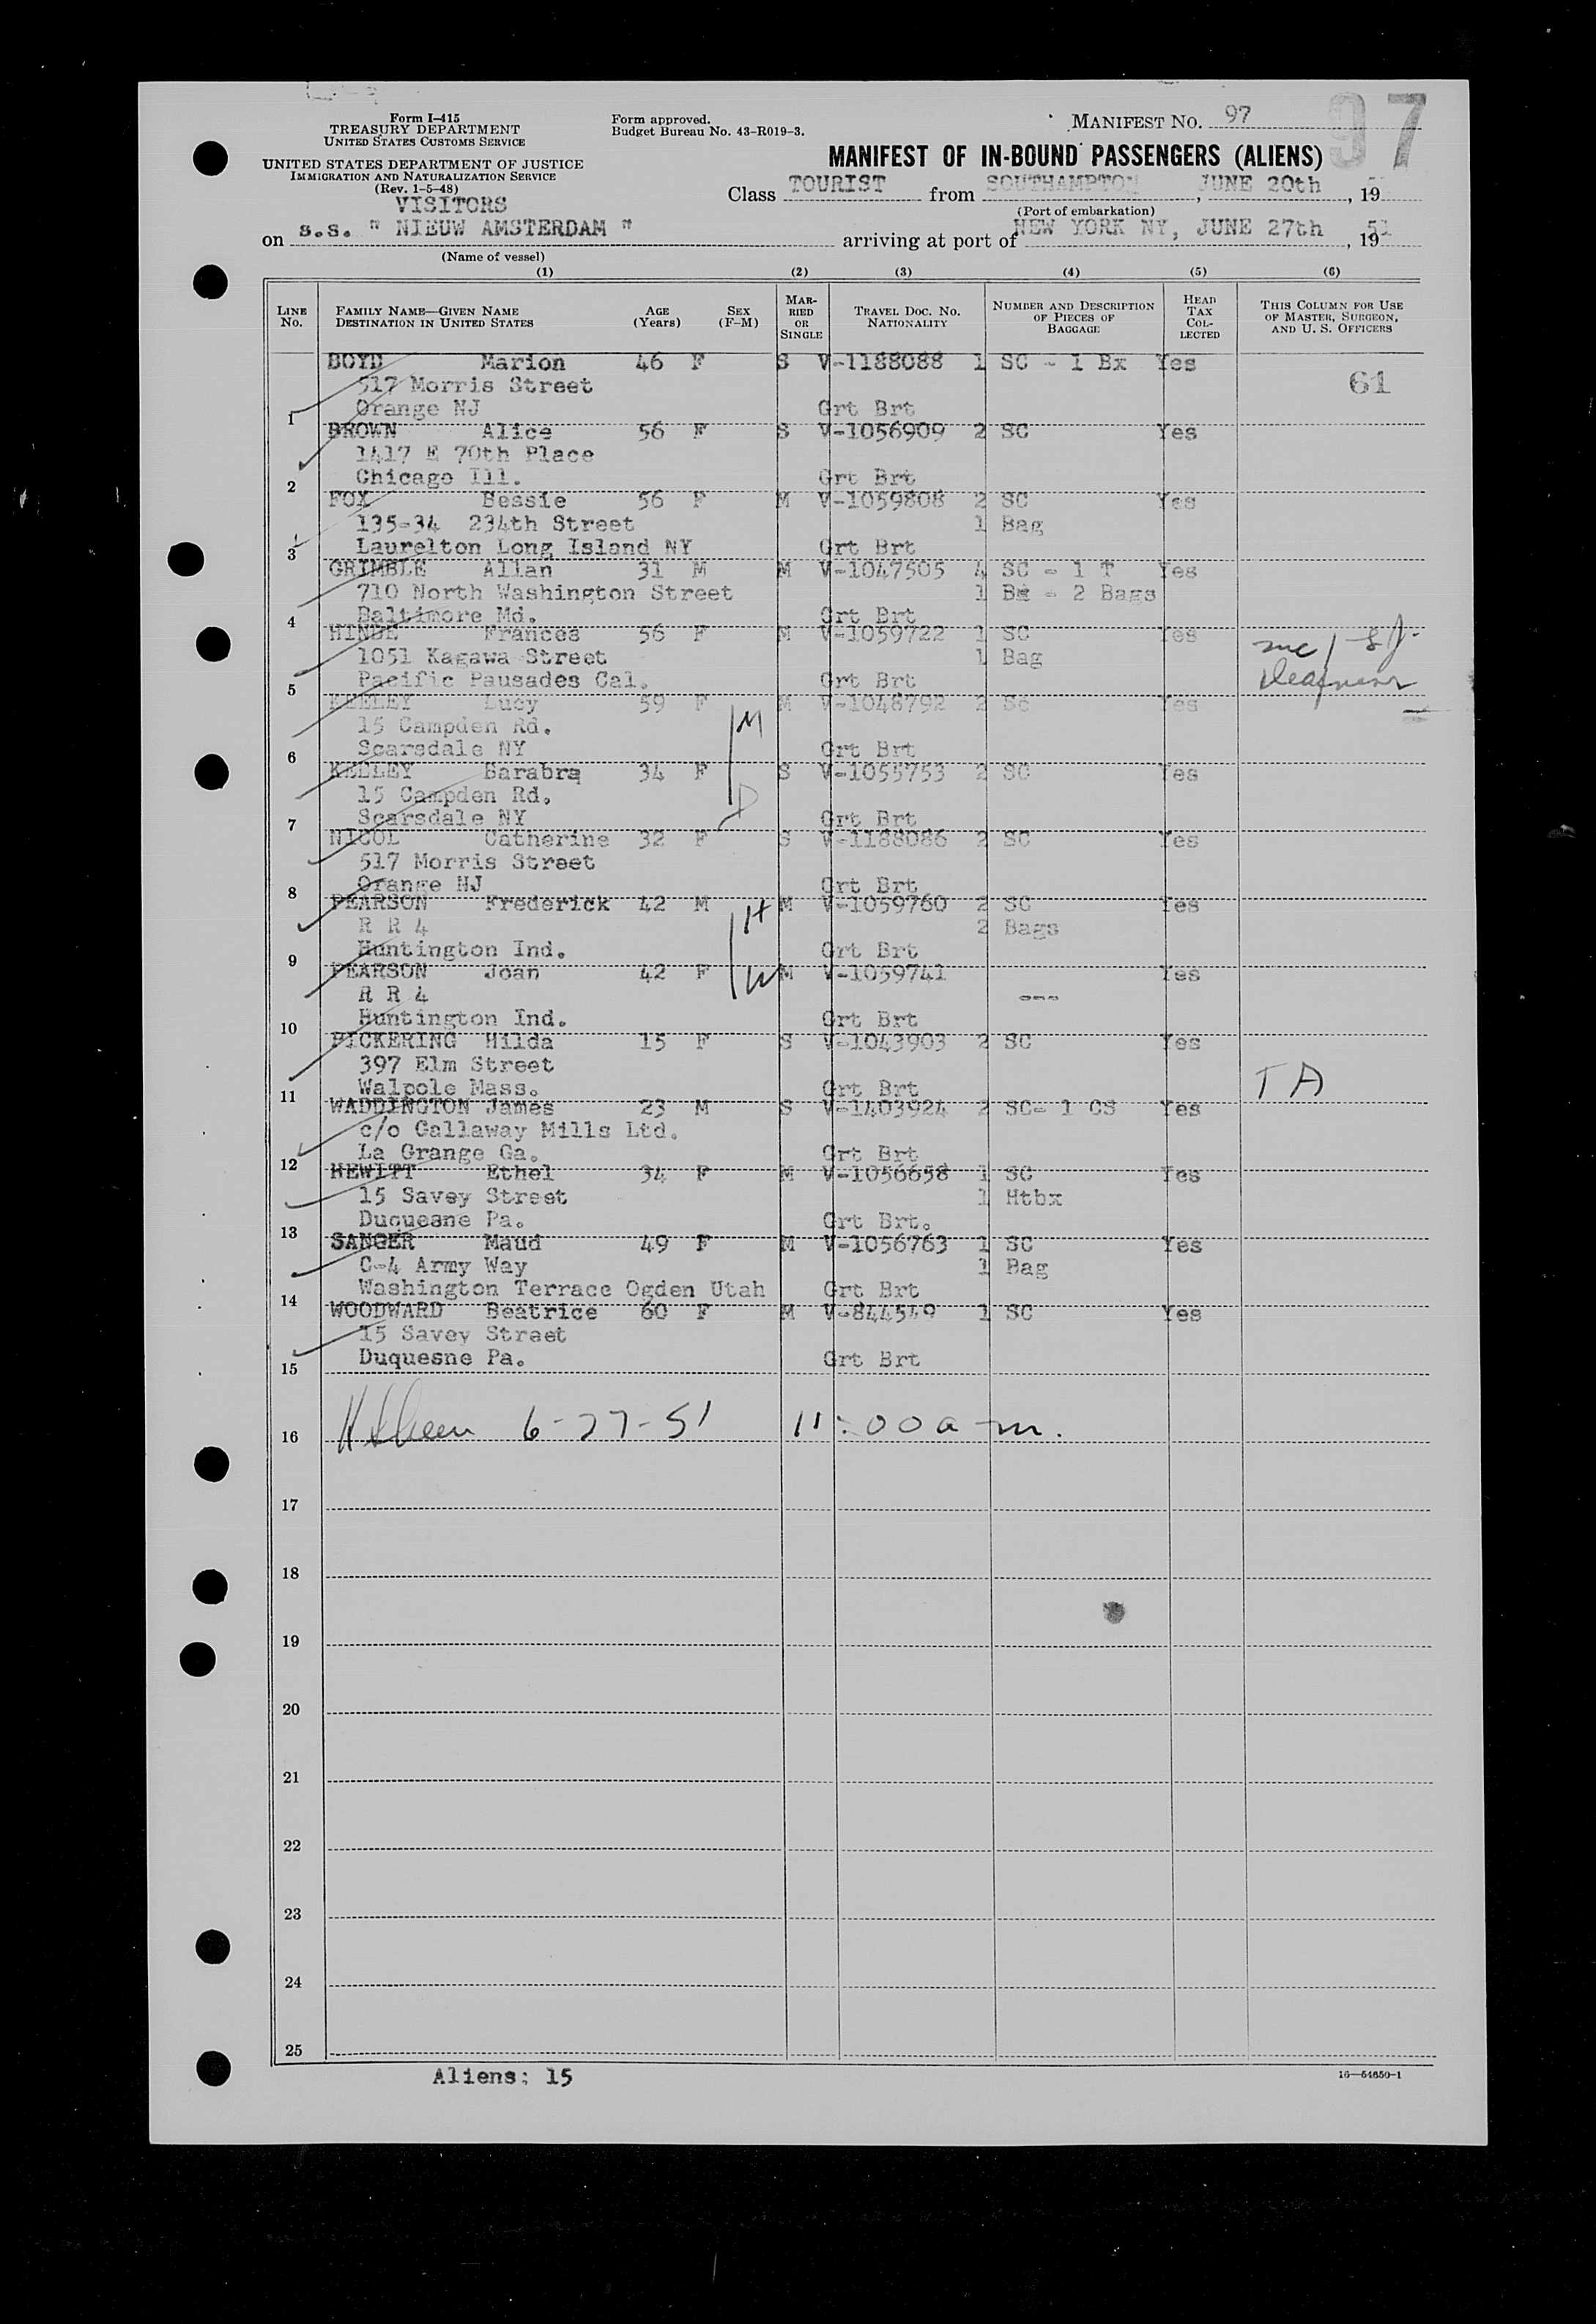 Form I-415
TREASURY DEPARTMENT
UNITED STATES CUSTOMS SERVICE
UNITED STATES DEPARTMENT OF JUSTICE
IMMIGRATION AND NATURALIZATION SERVICE
(Rev. 1-5-48)
VISITORS
Form approved.
Budget Bureau No. 43-R019-3.
MANIFEST NO. 97
97
MANIFEST OF IN-BOUND PASSENGERS (ALIENS)
Class TOURIST from SOUTHAMPTON, JUNE 20th, 19
(Port of embarkation)
on s.s. " NIEUW AMSTERDAM " arriving at port of NEW YORK NY, JUNE 27th, 1951
(Name of vessel)
(1) (2) (3) (4) (5) (6)
LINE No. FAMILY NAME—GIVEN NAME DESTINATION IN UNITED STATES AGE (Years) SEX (F-M) MARRIED OR SINGLE TRAVEL DOC. NO. NATIONALITY NUMBER AND DESCRIPTION OF PIECES OF BAGGAGE HEAD TAX COLLECTED THIS COLUMN FOR USE OF MASTER, SURGEON, AND U. S. OFFICERS
BOYD Marion 46 F S V-1188088 1 SC - 1 Bx Yes
517 Morris Street 61
1 Orange NJ Grt Brt
BROWN Alice 56 F S V-1056909 2 SC Yes
1417 E 70th Place
2 Chicago Ill. Grt Brt
FOX Bessie 56 F M V-1059808 2 SC Yes
135-34 234th Street 1 Bag
3 Laurelton Long Island NY Grt Brt
GRIMBLE Allan 31 M M V-1047505 4 SC - 1 T Yes
710 North Washington Street 1 Bx - 2 Bags
4 Baltimore Md. Grt Brt
HINDE Frances 56 F M V-1059722 1 SC Yes
1051 Kagawa Street 1 Bag
5 Pacific Pausades Cal. Grt Brt
KELLEY Lucy 59 F M V-1048792 2 Sc Yes
15 Campden Rd. M
6 Scarsdale NY Grt Brt
KELLEY Barabra 34 F S V-1055753 2 SC Yes
15 Campden Rd. D
7 Scarsdale NY Grt Brt
NICOL Catherine 32 F S V-1188086 2 SC Yes
517 Morris Street
8 Orange NJ Grt Brt
PEARSON Frederick 42 M H M V-1059760 2 SC Yes
R R 4 2 Bags
9 Huntington Ind. Grt Brt
PEARSON Joan 42 F W M V-1059741 Yes
R R 4 ---
10 Huntington Ind. Grt Brt
PICKERING Hilda 15 F S V-1043903 2 SC Yes
397 Elm Street T A
11 Walpole Mass. Grt Brt
WADDINGTON James 23 M S V-1403924 2 SC- 1 CS Yes
c/o Callaway Mills Ltd.
12 La Grange Ga. Grt Brt
HEWITT Ethel 34 F M V-1056658 1 SC Yes
15 Savey Street 1 Htbx
13 Duquesne Pa. Grt Brt.
SANGER Maud 49 F M V-1056763 1 SC Yes
C-4 Army Way 1 Bag
14 Washington Terrace Ogden Utah Grt Brt
WOODWARD Beatrice 60 F M V-844549 1 SC Yes
15 Savey Street
15 Duquesne Pa. Grt Brt
16 6-27-51 11:00 a m.
17
18
19
20
21
22
23
24
25
Aliens: 15
16—54650-1